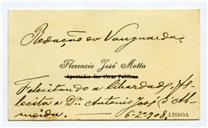 Redacção da Vanguarda.
Florencio José Motta
Apontador das Obras Publicas
Felicitando a liberdade, fe
licita a Dr. Antonio José d'Al
meida.
6-2º-908, LISBOA